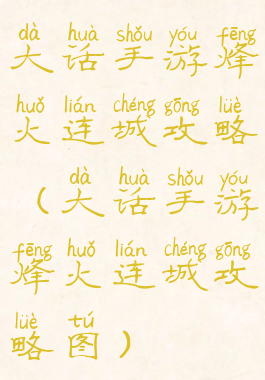 dà huà shǒu yóu fēng
大话手游烽
huǒ lián chéng gōng lüè
火连城攻略
dà huà shǒu yóu
（大话手游
fēng huǒ lián chéng gōng
烽火连城攻
lüè tú
略图）